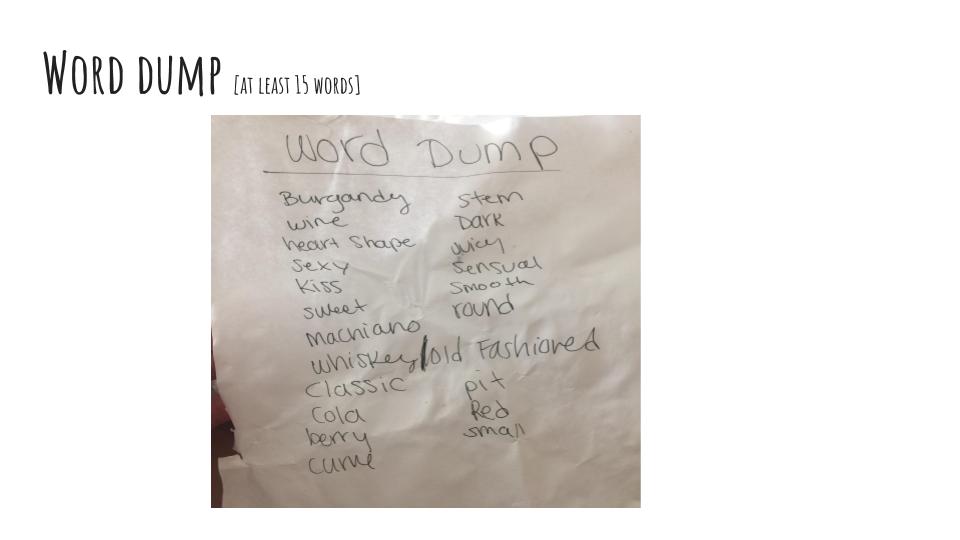 WORD DUMP [AT LEAST 15 WORDS]
Word Dump
Burgandy
wine
heart Shape
sexy
Kiss
sweet
machiano
whiskey/old Fashioned
Classic
Cola
berry
curve
stem
Dark
juicy
sensual
smooth
round
pit
Red
small